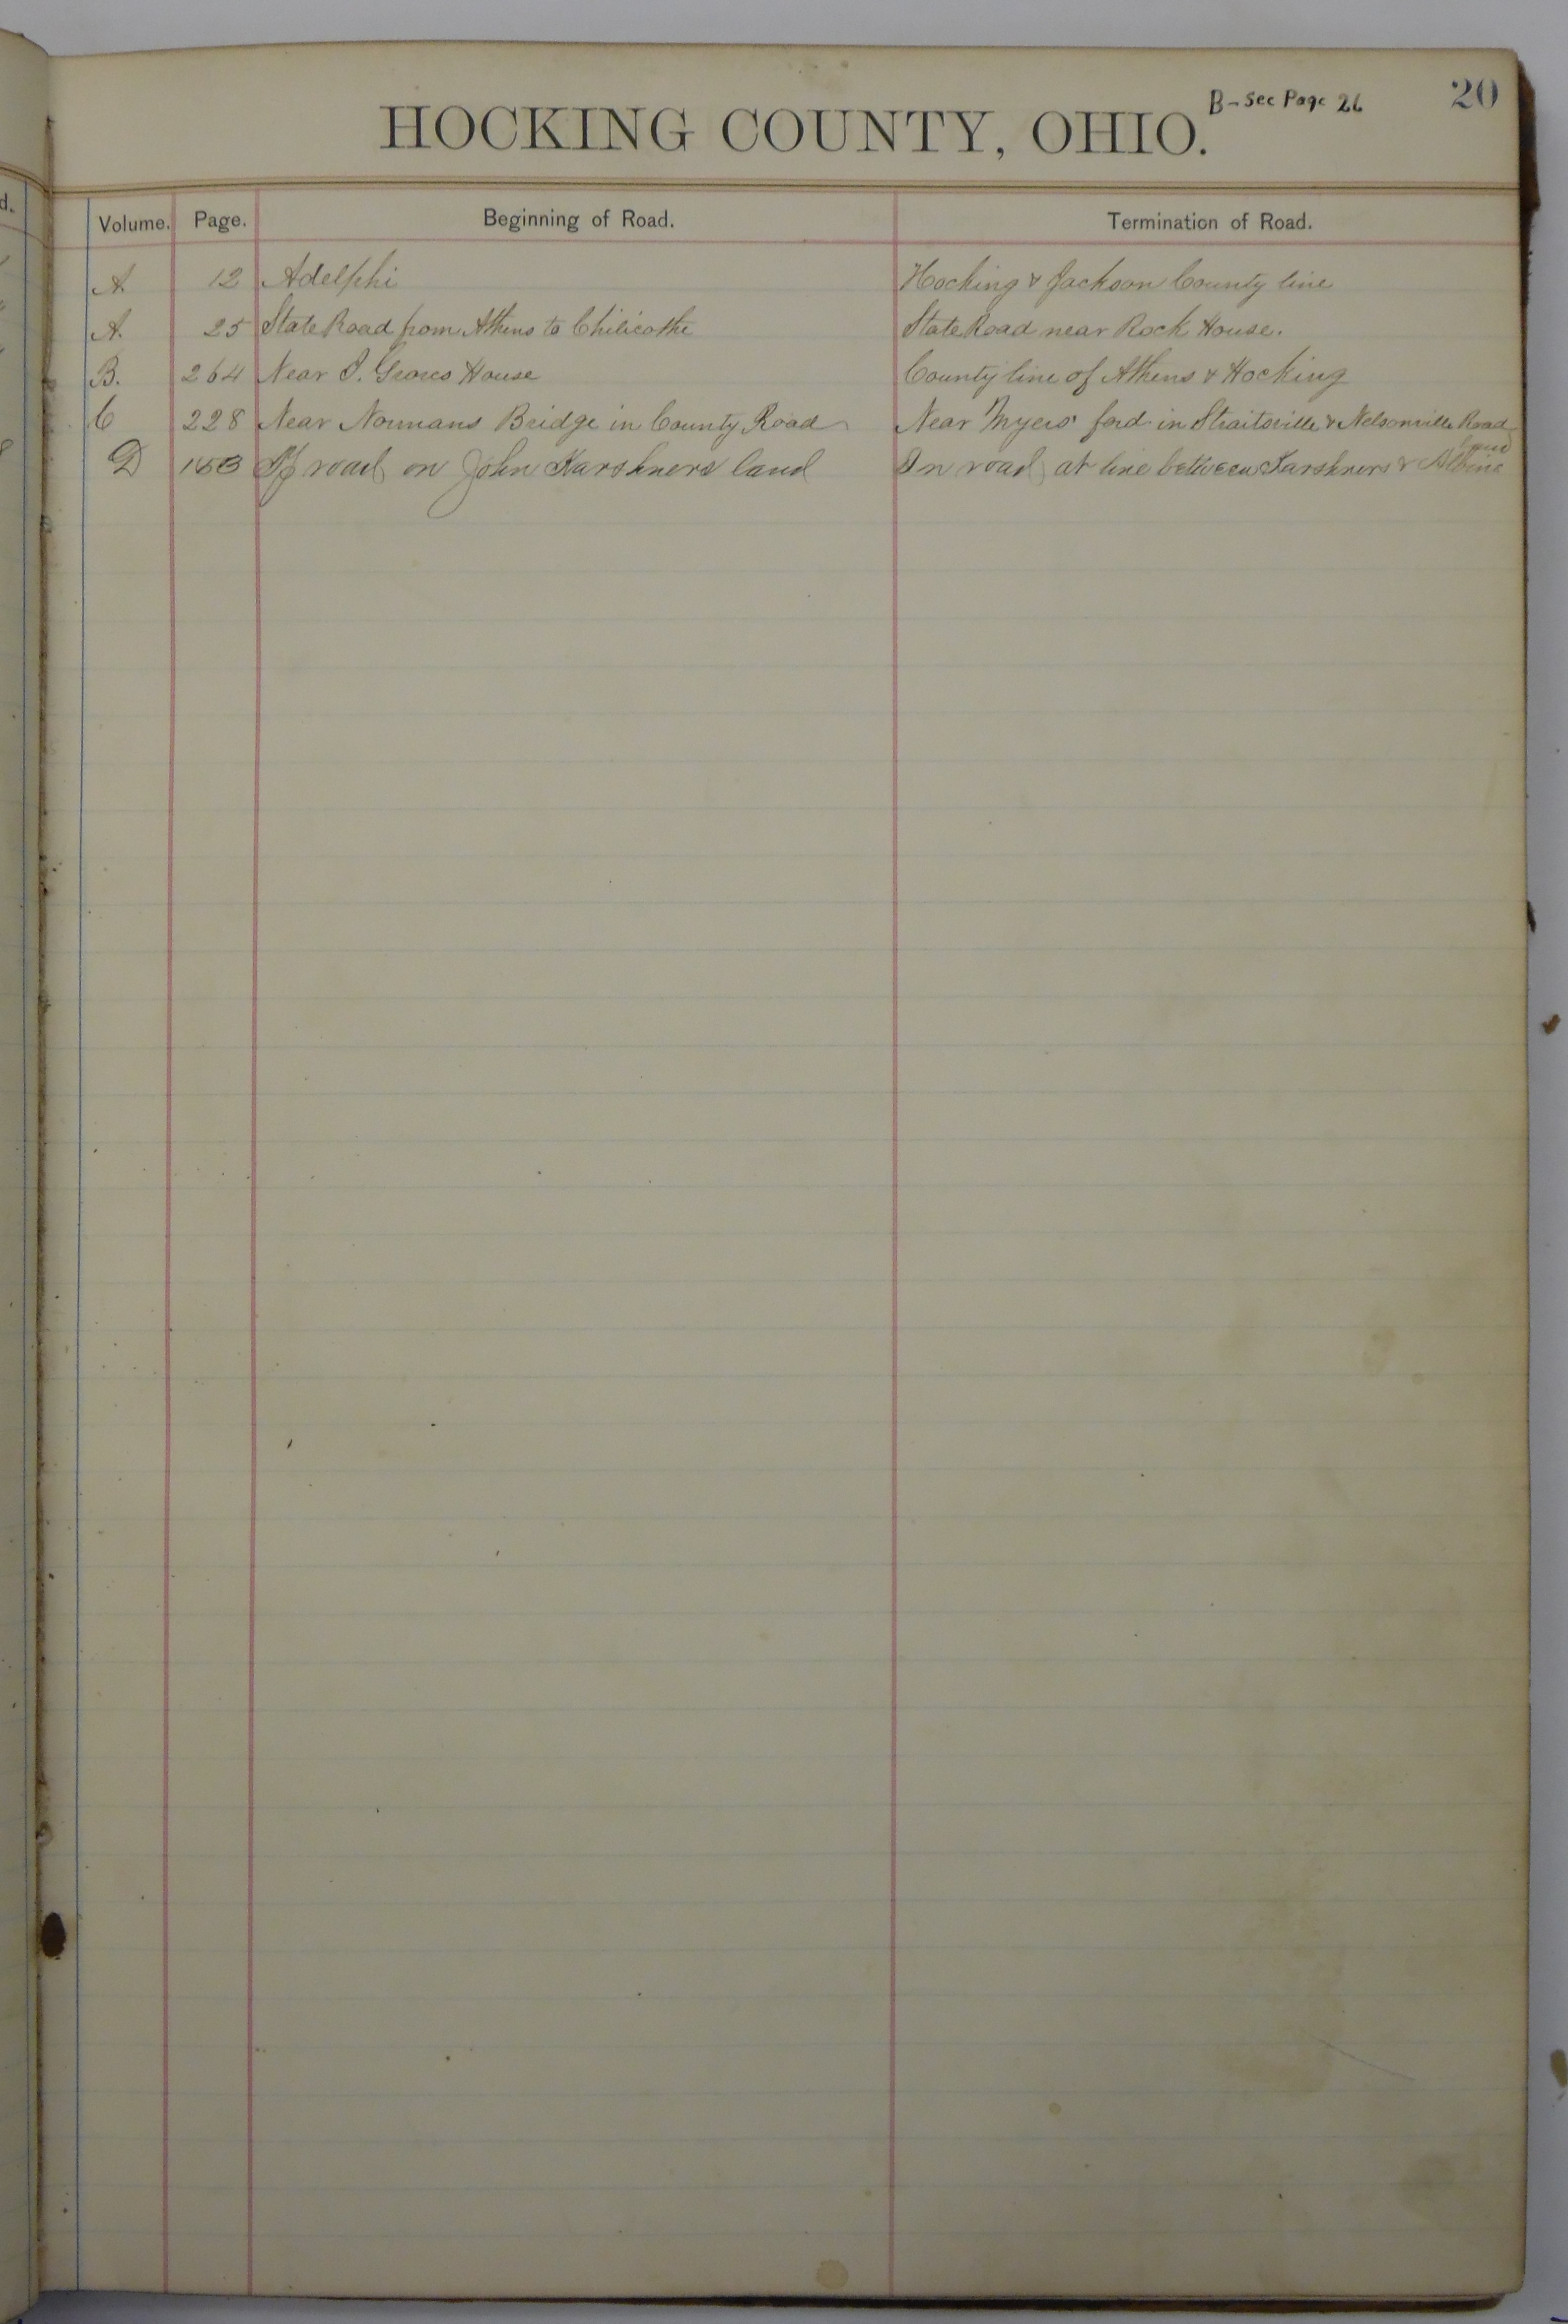 20
B- See Page 26
HOCKING COUNTY, OHIO.
d. Volume. Page. Beginning of Road. Termination of Road.
A. 12 Adelphi Hocking & Jackson County line
A. 25 State Road from Athens to Chilicothe State Road near Rock House.
B. 264 Near House County line of Athens & Hocking
C 228 Near Normans Bridge in County Road Near Myers' ford in Straitsville & Nelsonville Road
D road on John Karshners land In road at line between Karshners &
land